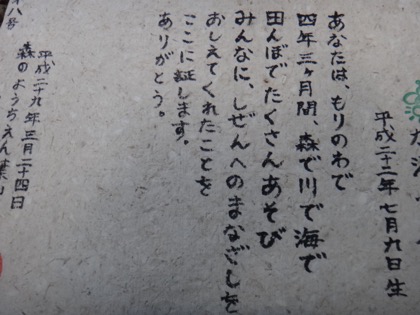 平成二十二年七月九日生
あなたは、もりのわで
四年三ヶ月間、森で川で海で
田んぼでたくさんあそび
みんなに、しぜんへのまなざしを
おしえてくれたことを
ここに証します。
ありがとう。
平成二十九年三月二十四日
森のようちえん
八号